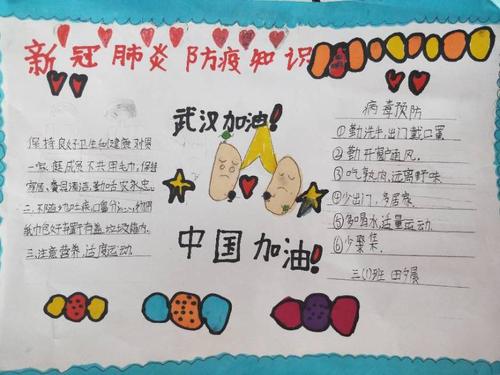 新冠肺炎防疫知识
武汉加油!
中国加油!
保持良好卫生和健康习惯
一. 家庭成员不共用毛巾,保持
家居、餐具清洁,勤
二. 不随地吐痰,口鼻分
纸巾包好弃置于有盖垃圾箱内.
三.注意营养,适度运动.
病毒预防
①勤洗手,出门戴口罩
②勤开窗通风.
③吃熟肉,远离野味
④少出门,多居家.
⑤多喝水,适量运动.
⑥少聚集.
三(1)班